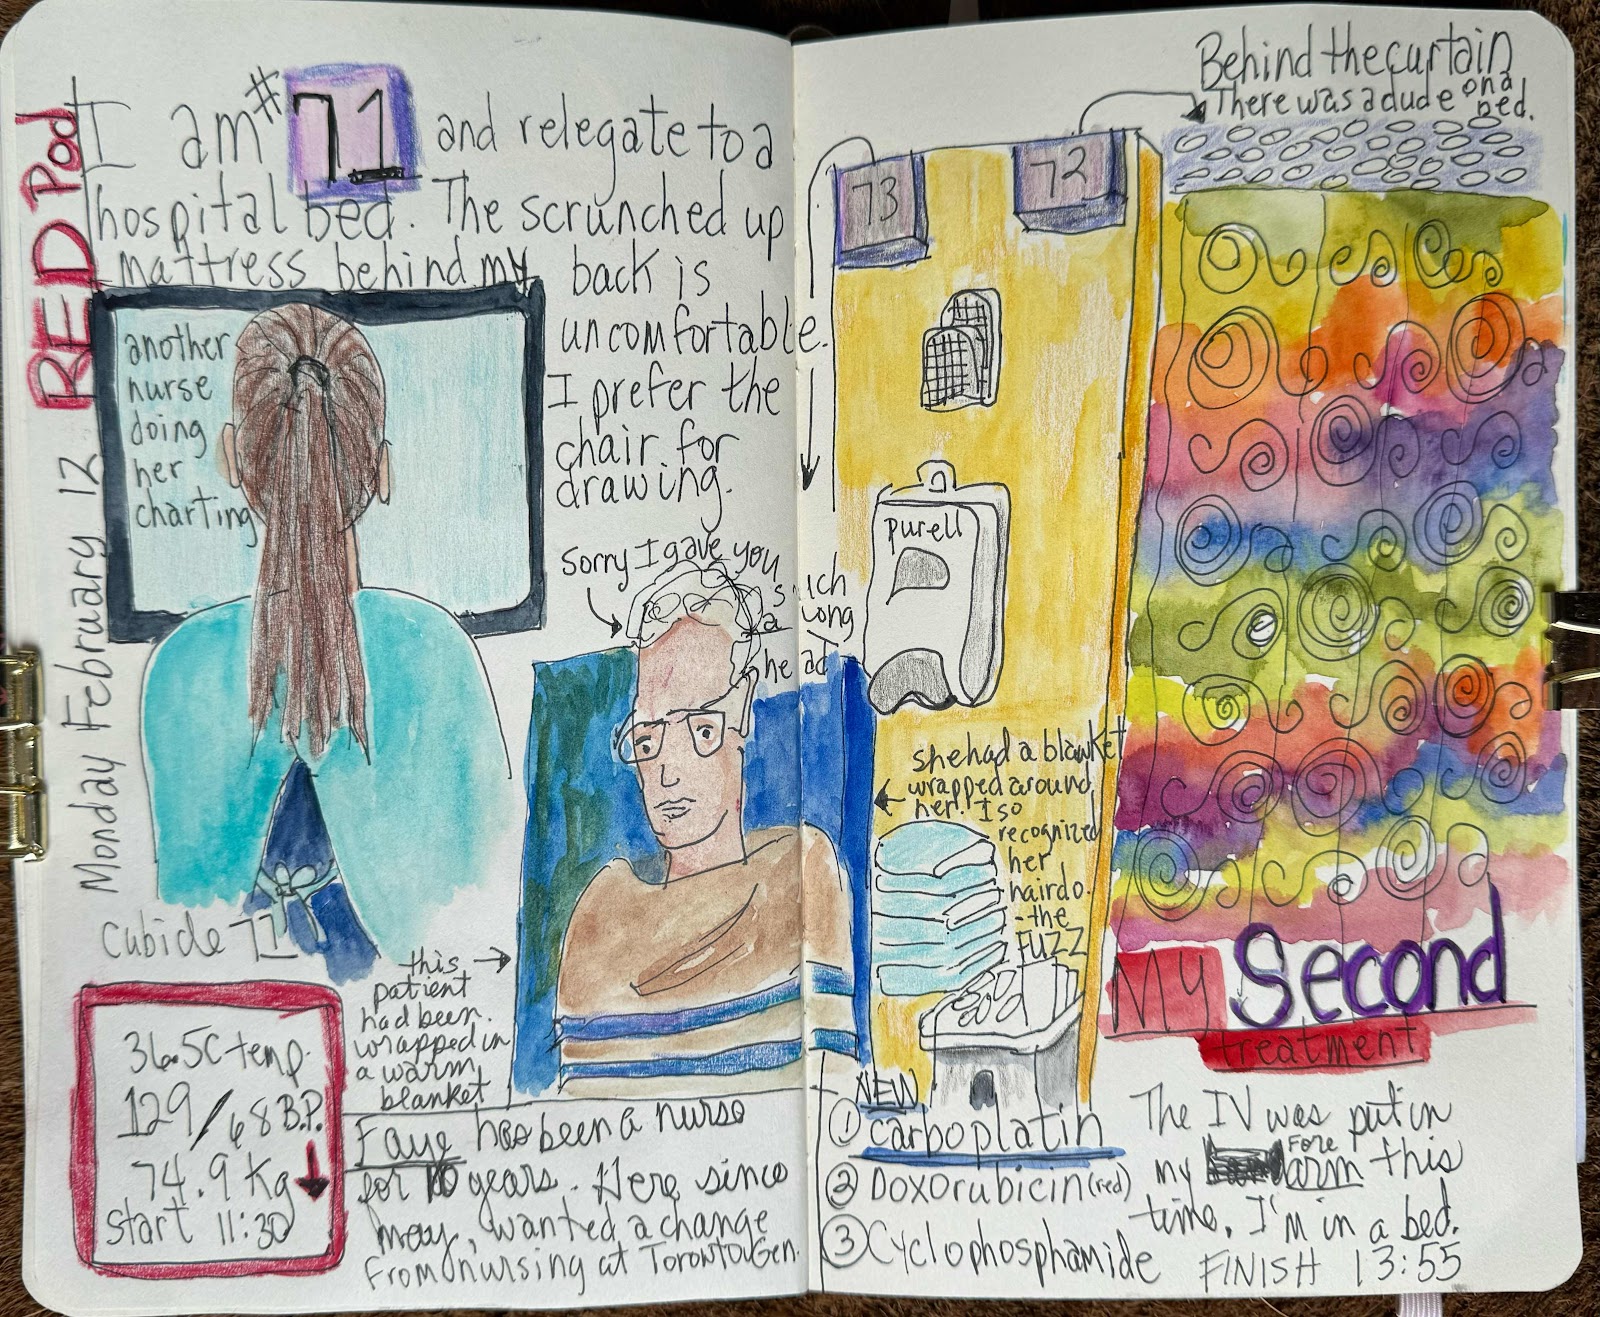 RED Pod
Monday February 12
I am #71 and relegate to a
hospital bed. The scrunched up
mattress behind my back is
uncomfortable.
I prefer the
chair for
drawing.
another
nurse
doing
her
charting
Cubicle 71
36.5C temp.
129/68 B.P.
74.9 Kg
start 11:30
sorry I gave you
such
a long
head
this
patient
had been
wrapped in
a warm
blanket
Faye has been a nurse
for 10 years. Here since
may, wanted a change
from nursing at Toronto Gen.
73
72
Behind the curtain
There was a dude on a
bed.
purell
she had a blanket
wrapped around
her! I so
recognized
her
hairdo.
- the
FUZZ
My Second
treatment
NEW
① carboplatin
② Doxorubicin (red)
③ Cyclophosphamide
The IV was put in
my Fore arm this
time. I'm in a bed.
FINISH 13:55